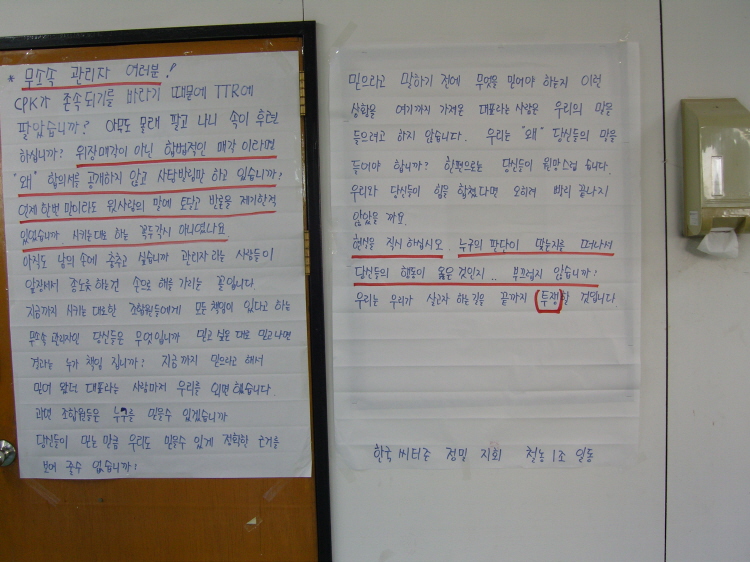 * 무소속 관리자 여러분!
CPK가 존속되기를 바라기 때문에 TTR에
팔았습니까? 아무도 몰래 팔고 나니 속이 후련
하십니까? 위장매각이 아닌 합법적인 매각 이라면
"왜" 합의서를 공개하지 않고 사담발림만 하고 있습니까?
이제 한번 만이라도 윗사람의 말에 토달고 반론을 제기한적
있었습니까. 시키는대로 하는 꼭두각시 아니였나요
아직도 남의 손에 춤추고 싶습니까 관리자 라는 사람들이
앞잡이 노릇 하는건 손으로 해를 가리는 꼴입니다.
지금까지 시키는 대로한 조합원들에게 모든 책임이 있다고 하는
무소속 관리자인 당신들은 무엇입니까 믿고 싶은 대로 믿고나면
결과는 누가 책임 집니까? 지금 까지 믿으라고 해서
믿어 왔던 대표라는 사람마저 우리를 외면 했습니다.
과연 조합원들은 누구를 믿을수 있겠습니까
당신들이 믿는 만큼 우리도 믿을수 있게 정확한 근거를
보여 줄수 없습니까?
믿으라고 말하기 전에 무엇을 믿어야 하는지 이런
상황을 여기까지 가져온 대표라는 사람은 우리의 말을
들으려고 하지 않습니다. 우리는 "왜" 당신들의 말을
들어야 합니까? 한편으로는 당신들이 원망스럽 습니다.
우리와 당신들이 힘을 합쳤다면 오히려 빨리 끝나지
않았을 까요.
현실을 직시 하십시오. 누구의 판단이 맞는지를 떠나서
당신들의 행동이 옳은 것인지.. 부끄럽지 않습니까?
우리는 우리가 살고자 하는길을 끝까지 투쟁할 것입니다.
한국 씨티즌 정밀 지회 천농 1조 일동